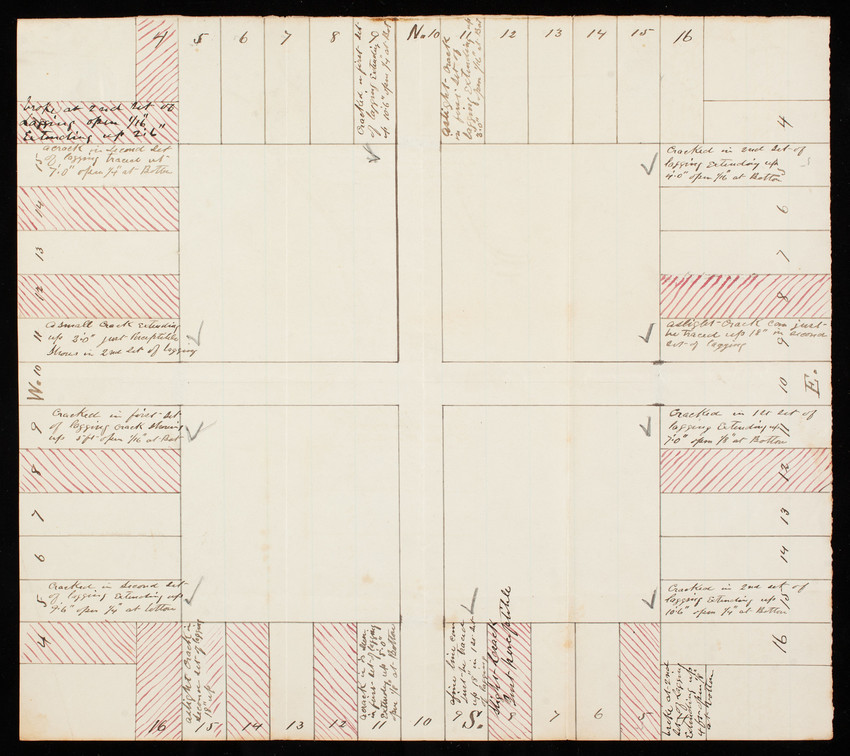 4 5 6 7 8
Cracked in first set
of lagging Extending
up 10'6" open 1/4 at Bot
9
No. 10
11
aslight crack
in first set of
lagging Extending up
3'0" open 1/16 at Bot
12 13 14 15 16
broke at 2nd set of
lagging open 1/16"
Extending up 2'6"
4
acrack in second set
of lagging traced up
7'0" open 1/4" at Bottom
Cracked in 2nd set of
lagging Extending up
4'0" open 1/16 at Bottom
5
14
6
13
7
12
8
11
asmall crack Extending
up 3'0" just Perceptible
Shows in 2nd set of lagging
aslight crack can just
be traced up 18" in second
set of lagging
9
W. 10
10 E.
9
Cracked in first set
of lagging crack Showing
up 5ft open 1/16" at Bot
Cracked in 1st set of
lagging Extending up
7'0" open 1/8" at Bottom
11
8
12
7
13
6
14
5
Cracked in Second set
of lagging Extending up
9'6" open 1/4" at bottom
Cracked in 2nd set of
lagging Extending up
10'6" open 1/4" at Bottom
15
4
16
16
aslight crack in
second set of lagging
18" up
15 14 13 12
acrack is
in first set of lagging
Extending up
open 1/8" at Bottom
11
10
afine line can
just be traced
up 18" in 1st set
of lagging
9
S.
Slight Crack
Just perceptible
7 6 5
broke at 2nd
set of lagging
Extending up
at bottom